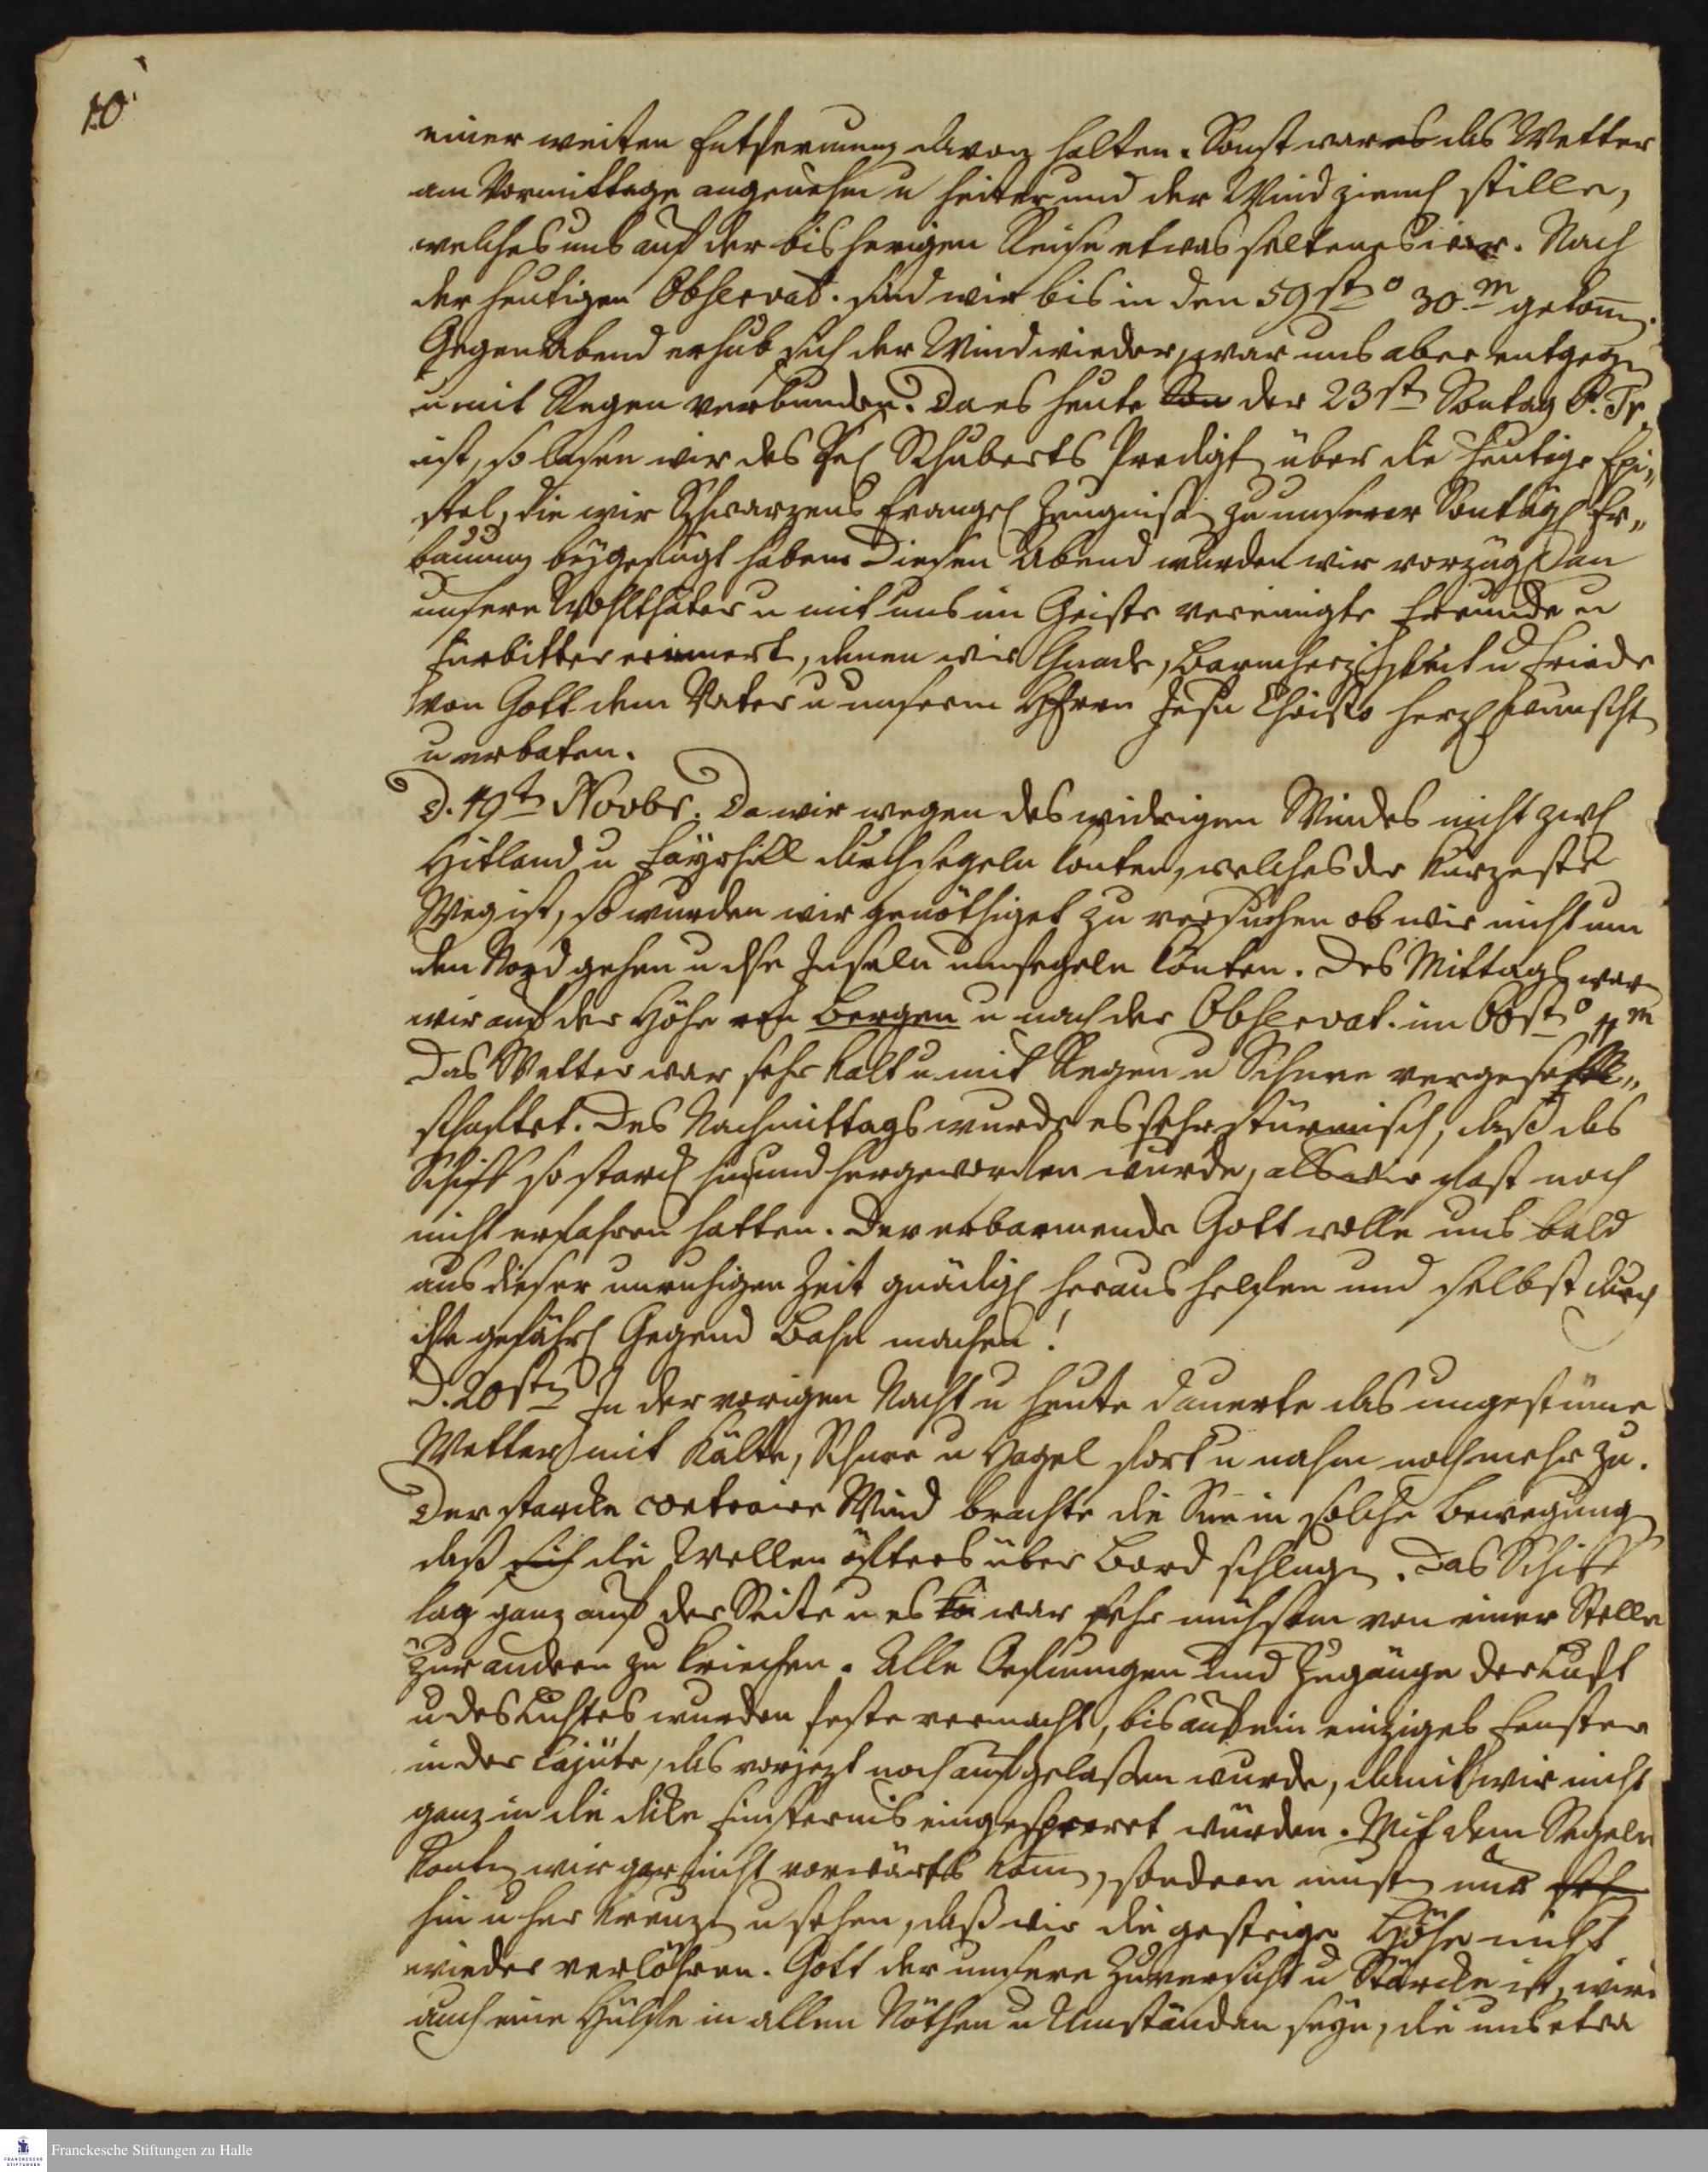 10.
einer weiten Entfernung davon halten. Sonst war es das Wetter
am Vormittage angenehm u heiter und der Wind zieml stille,
welches uns auf der bisherigen Reise etwas seltenes war. Nach
der heutigen Observat. sind wir bis in den 59st° 30.m gekom̅.
Gegen Abend erhub sich der Wind wieder, war uns aber entgegen
u mit Regen verbunden. Da es heute Son der 23stn Sontag P. Tr.
ist, so lasen wir des Sel Schuberts Predigt über die heutige Epi„
stel, die wir Schwarzens Evangel Zeugniss zu unserer Sontägl Er„
bauung beygefügt haben. Diesen Abend wurden wir vorzügl an
unsere Wohlthäter u mit uns im Geiste vereinigte Freunde u
Fürbitter erinnert, denen wir Gnade, Barmherzigkeit u Friede
von Gott dem Vater u unserm HErrn Jesu Christo herzl wünscht
u erbaten.
D. 19tn Novbr. Da wir wegen des widrigen Windes nicht zwl
Hitland u Fayrhill durchsegeln konten, welches der kürzeste
Weg ist, so wurden wir genöthiget zu versuchen ob wir nicht um
den Nord gehen u dse Inseln umsegeln könten. Des Mittags warn
wir auf der Höhe von Bergen u nach der Observat. im 60st° 11m
Das Wetter war sehr kalt u mit Regen u Schnee vergesell„
schaftet. Des Nachmittags wurde es sehr stürmisch, daß das
Schiff so starck hin und hergeworfen wurde, als wir fast noch
nicht erfahren hatten. Der erbarmende Gott wolle uns bald
aus dieser unruhigen Zeit gnädigl heraus helfen und selbst durch
dse gefährl Gegend Bahn machen!
D. 20stn In der vorigen Nacht u heute dauerte das ungestüme
Wetter mit Kälte, Schnee u Hagel fort u nahm noch mehr zu.
Der starcke contraire Wind brachte die See in solche Bewegung
daß sich die Wellen öfters über Bord schlugn. Das Schiff
lag ganz auf der Seite u es ko war sehr mühsam von einer Stelle
zur andern zu kriechen. Alle Oefnungen und Zugänge der Luft
u des Lichtes wurden feste vermacht, bis auf ein einziges Fenster
in der Cajüte, das vorjezt noch aufgelassen wurde, damit wir nicht
ganz in die dicke Finsternis eingesperret würden. Mit dem Segeln
kontn wir gar nicht vorwärts kom̅n, sondern mustn nur seh
hin u her kreuzn u sehen, daß wir die gestrige Höhe nicht
wieder verlöhren. Gott der unsere Zuversicht u Stärcke ist, wird
auch eine Hülfe in allen Nöthen u Umständen seyn, die uns etwa
Franckesche Stiftungen zu Halle